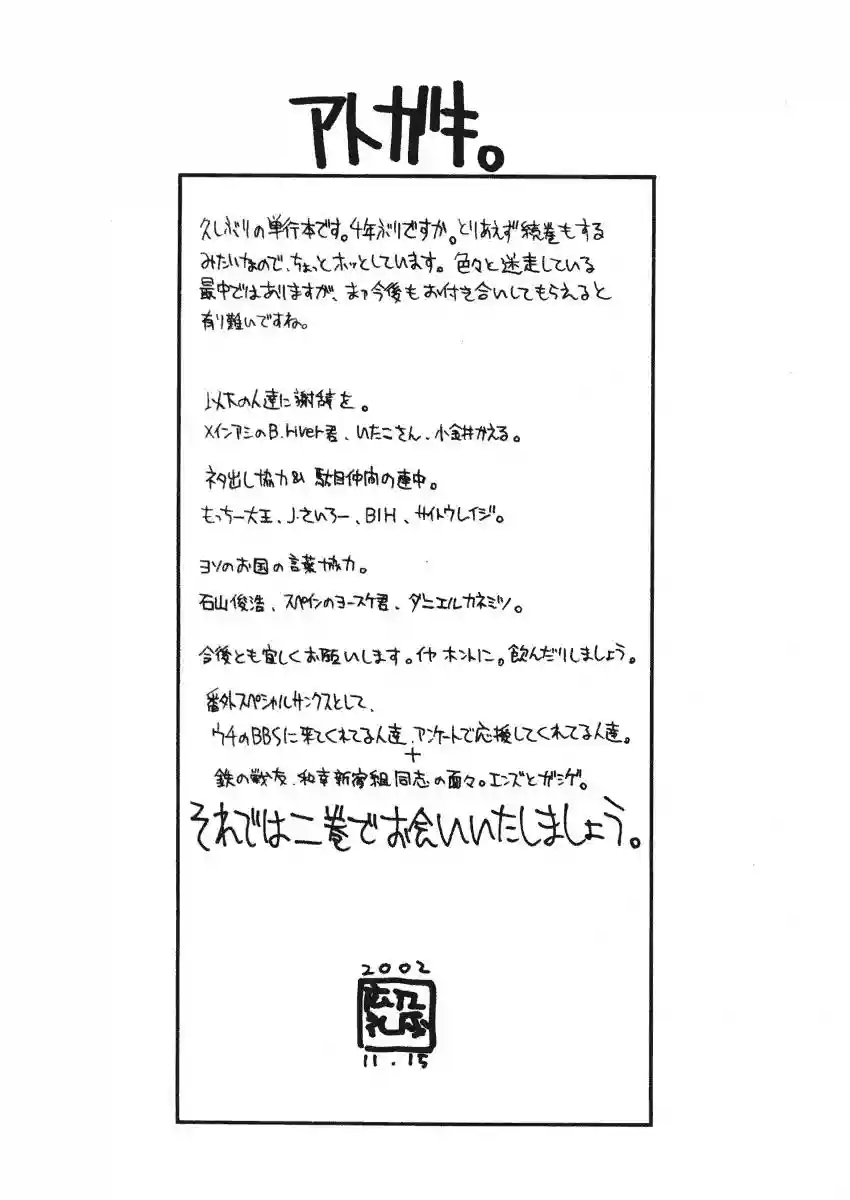 アトガキ。
久しぶりの単行本です。4年ぶりですか。とりあえず続巻もする
みたいなので、ちょっとホッとしています。色々と迷走している
最中ではありますが、まァ今後もお付き合いしてもらえると
有り難いですね。
以下の人達に謝辞を。
メインアシのB.river君、いたこさん、小金井かえる。
ネタ出し協力&駄目仲間の連中。
もっちー大王、J.さいろー、BIH、サイトウレイジ。
ヨソのお国の言葉協力。
石山俊浩、スペインのヨースケ君、ダニエルカネミツ。
今後とも宜しくお願いします。イヤ ホントに。飲んだりしましょう。
番外スペシャルサンクスとして、
ウチのBBSに来てくれてる人達、アンケートで応援してくれてる人達。
+
鉄の戦友、和幸新宿組同志の面々。エンズとガシゲ。
それでは二巻でお会いいたしましょう。
2002
広江
礼威
11.15